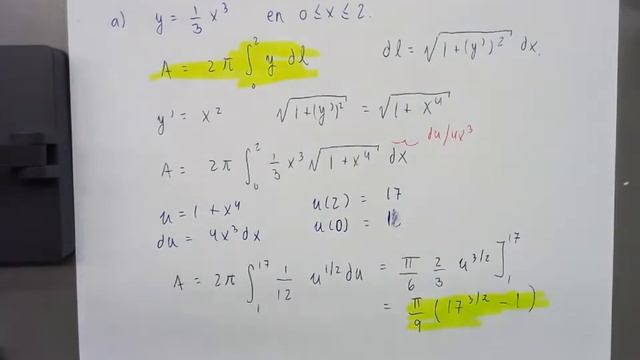 a) y = 1/3 x³ en 0 ≤ x ≤ 2.
A = 2π ∫₀² y dl dl = √(1+(y')²) dx.
y' = x² √(1+(y')²) = √(1+x⁴)
A = 2π ∫₀² 1/3 x³ √(1+x⁴) dx du/4x³
u = 1 + x⁴ u(2) = 17
du = 4x³dx u(0) = 1
A = 2π ∫₁¹⁷ 1/12 u^(1/2) du = π/6 2/3 u^(3/2) ]₁¹⁷
= π/9 (17^(3/2) - 1)